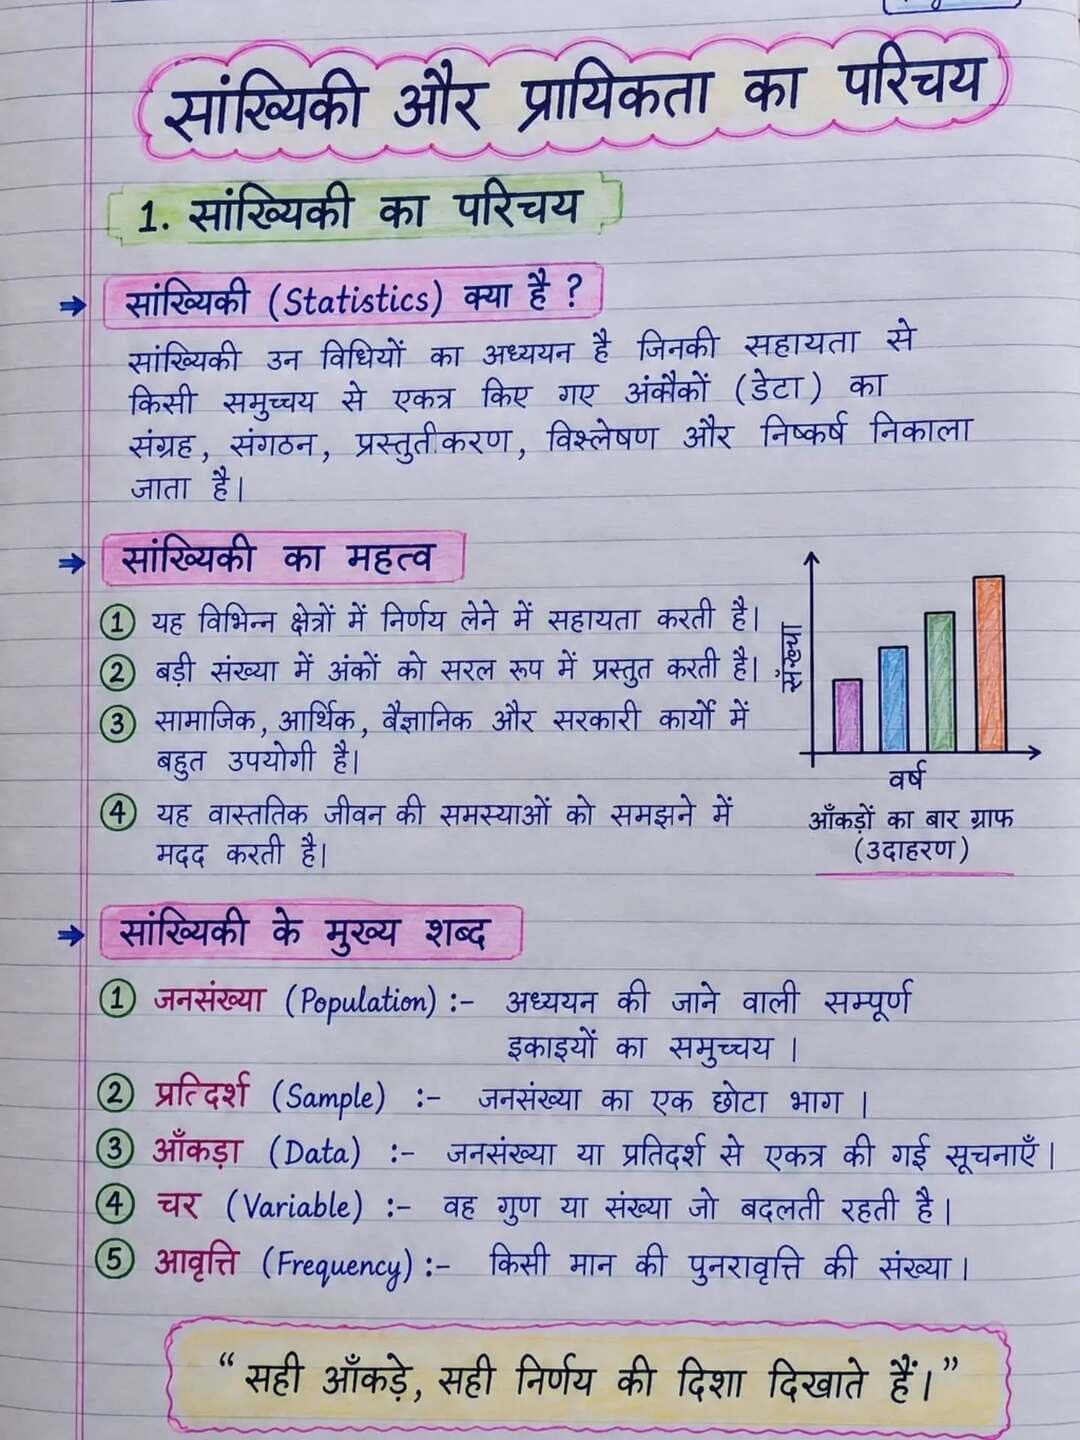 सांख्यिकी और प्रायिकता का परिचय
1. सांख्यिकी का परिचय
→ सांख्यिकी (Statistics) क्या है ?
सांख्यिकी उन विधियों का अध्ययन है जिनकी सहायता से
किसी समुच्चय से एकत्र किए गए अंकौकों (डेटा) का
संग्रह, संगठन, प्रस्तुतीकरण, विश्लेषण और निष्कर्ष निकाला
जाता है।
→ सांख्यिकी का महत्व
① यह विभिन्न क्षेत्रों में निर्णय लेने में सहायता करती है।
② बड़ी संख्या में अंकों को सरल रूप में प्रस्तुत करती है।
③ सामाजिक, आर्थिक, वैज्ञानिक और सरकारी कार्यों में
बहुत उपयोगी है।
④ यह वास्ततिक जीवन की समस्याओं को समझने में
मदद करती है।
वर्ष
आँकड़ों का बार ग्राफ
(उदाहरण)
→ सांख्यिकी के मुख्य शब्द
① जनसंख्या (Population) :- अध्ययन की जाने वाली सम्पूर्ण
इकाइयों का समुच्चय ।
② प्रतिदर्श (Sample) :- जनसंख्या का एक छोटा भाग ।
③ आँकड़ा (Data) :- जनसंख्या या प्रतिदर्श से एकत्र की गई सूचनाएँ ।
④ चर (Variable) :- वह गुण या संख्या जो बदलती रहती है ।
⑤ आवृत्ति (Frequency) :- किसी मान की पुनरावृत्ति की संख्या ।
“ सही आँकड़े, सही निर्णय की दिशा दिखाते हैं। ”